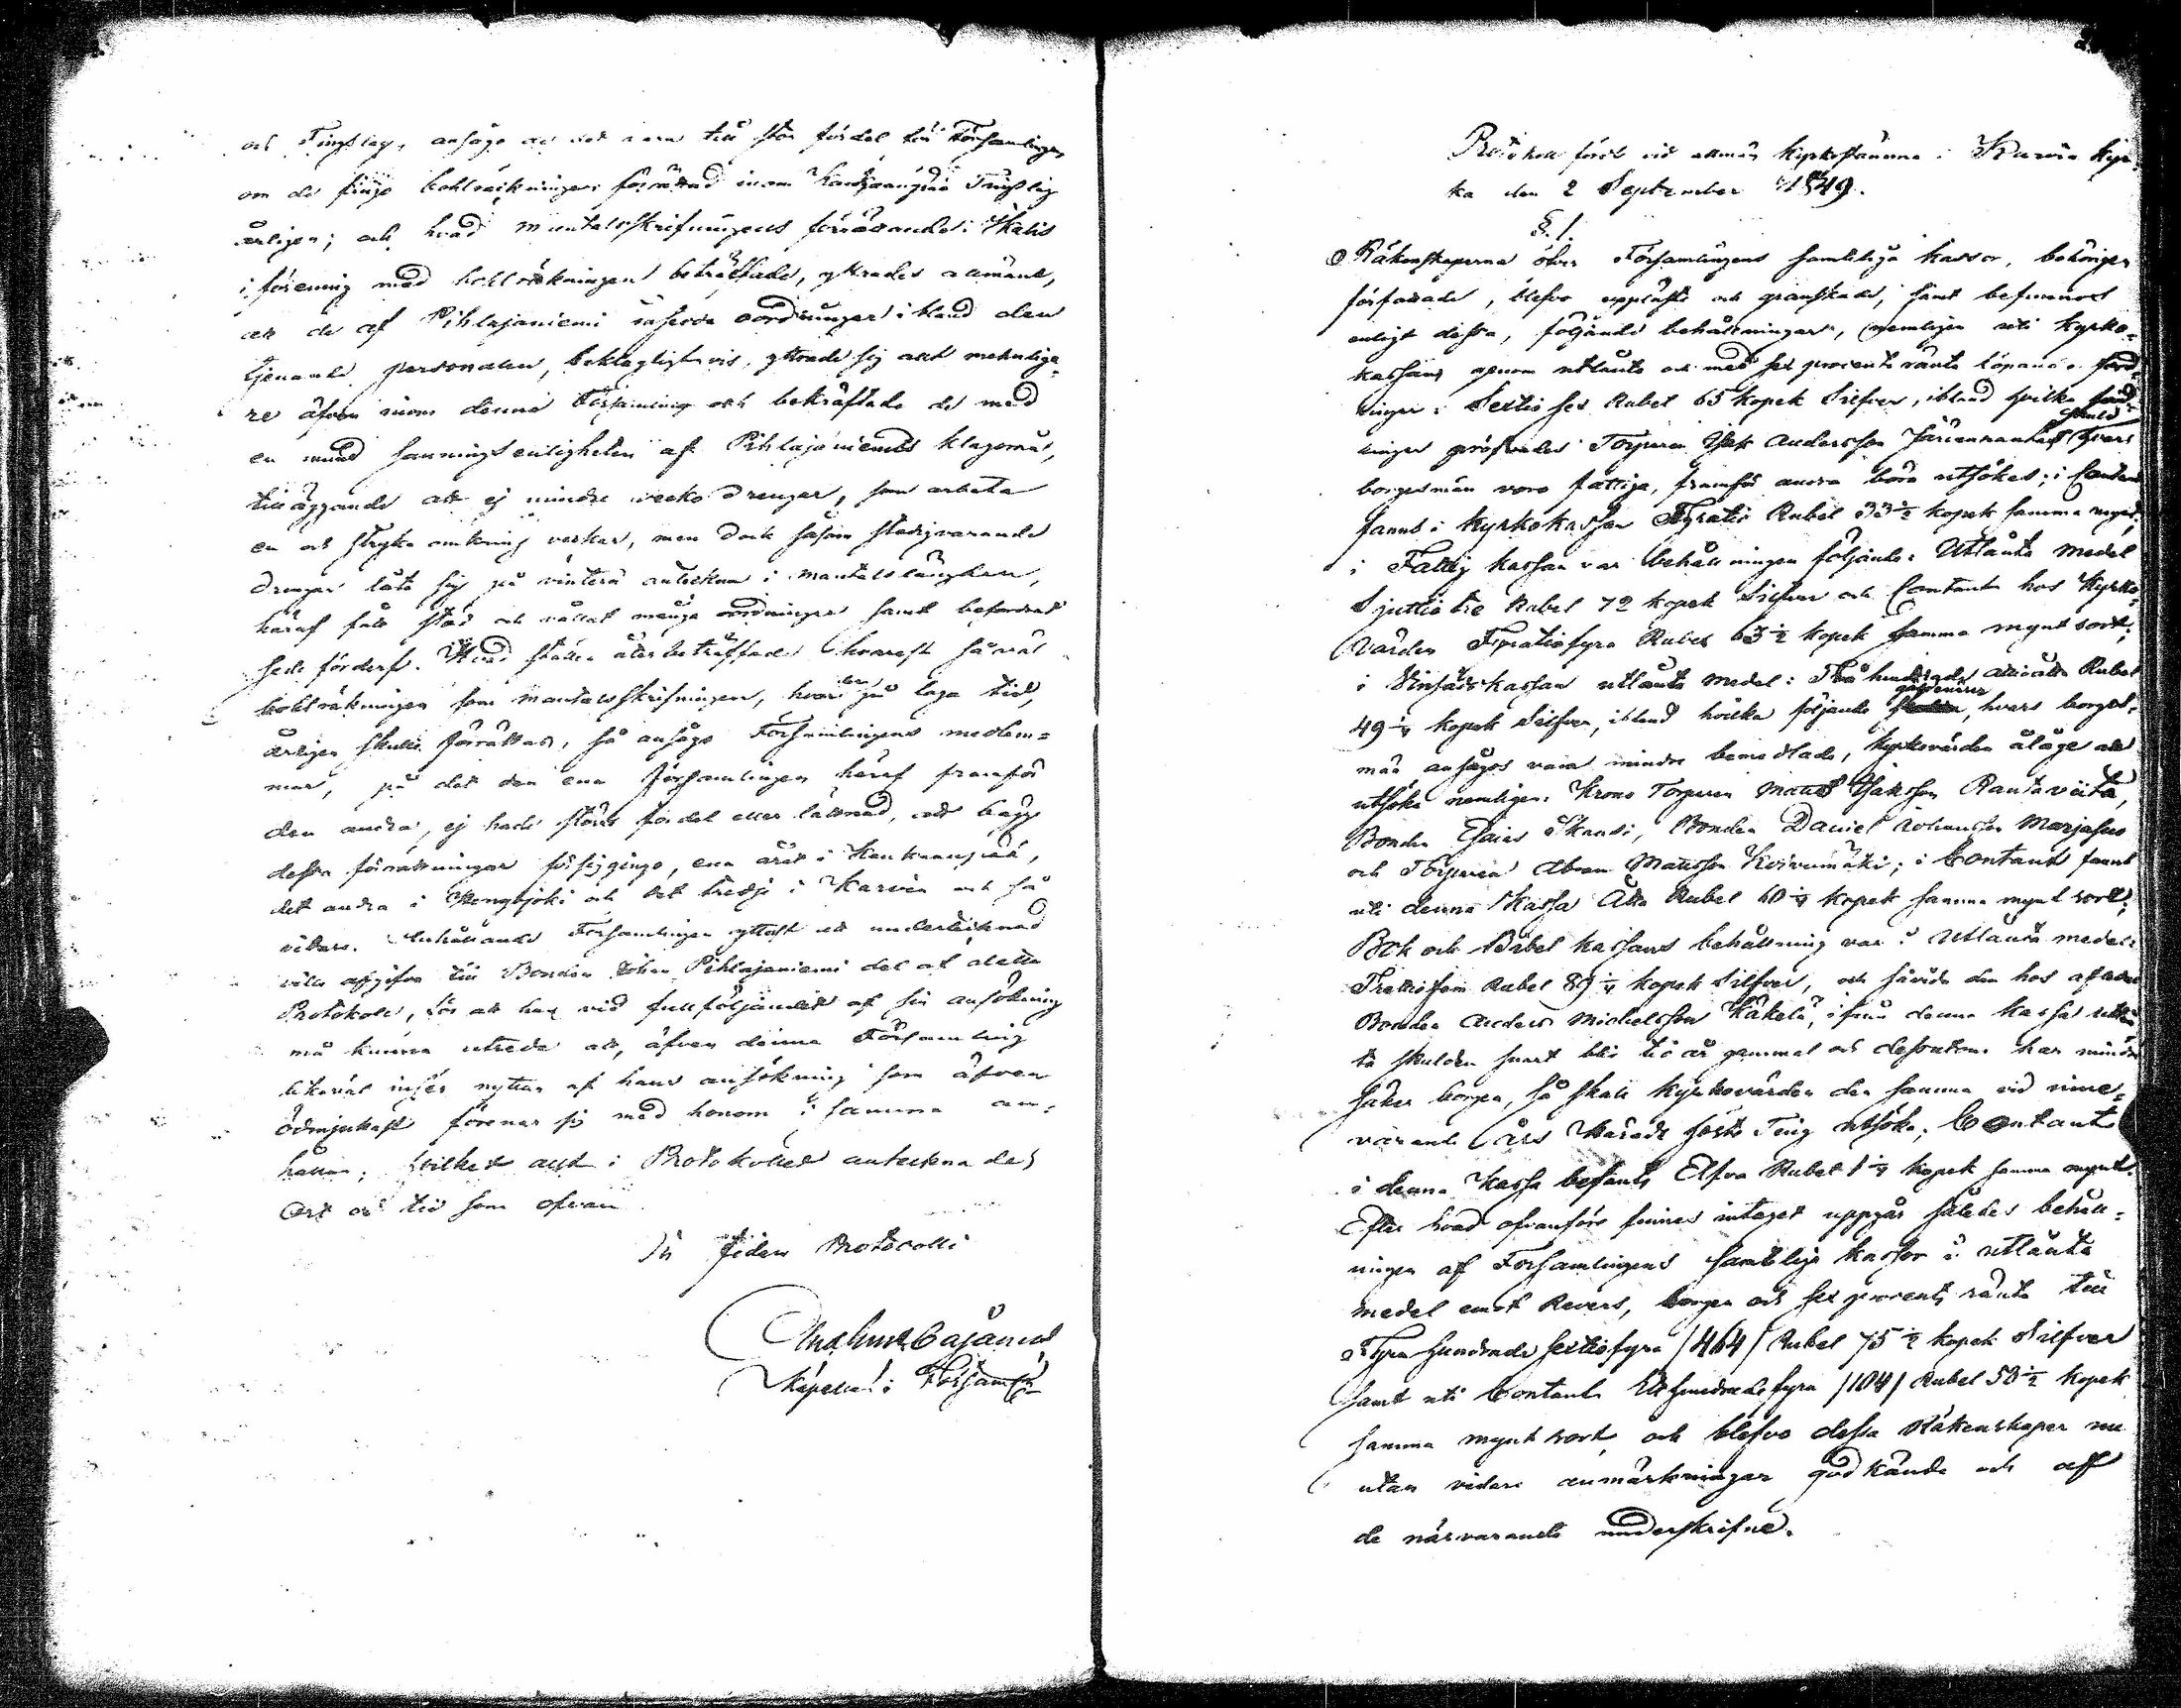 och Tingslag, ansågo at det vara till stor fördel för Församlingen
om de finge bohlräkningen förrättad inom Kankaanpää Tingslag
årligen; och hvad mantalsskrifningens förrättande i Skatis
i förening med bohlräkningen beträffade, yttrades allmänt,
att de af Pihlajaniemi införda oordningar ibland den
tjenande personalen, beklagligtvis, yttrade sig allt mehrligare
re äfven inom denna Församling och bekräftade de med
en mund sanningsenligheten af Pihlajaniemis klagomål,
tilläggande att ej mindre veckodrengar, som arbeta
en och stryka omkring veckar, men dock såsom stadigvarande
drengar låta sig på vintern anteckna i mantalslängden,
häraf får stöd och vållat många oordningar samt befordrat
sedeförderf. Hvad ställen åter beträffade hvarest såväl
bohlräkningen som mantalsskrifningen, hvardera på laga tid,
årligen skulle förrättas, så ansågo Församlingens medlem=
mar, på det den ena församlingen häraf framför
den andra, ej hade större fördel eller lättnad, att bägge
dessa förrättningar försiggingo, ena året i Kankaanpää,
det andra i Hongojoki och det tredje i Karvia och så
vidare. Anhållande Församlingen yttast att undertecknad
ville afgifva till Bonden Johan Pihlajaniemi del af detta
Protokoll, för att han vid fullföljandet af sin ansökning
må kunna utreda att, äfven denna Församling
likaväl inser nyttan af hans ansökning som äfven
ödmjukast förenar sig med honom i samma an=
hållan; hvilket allt i Protokollet antecknades
Ort och tid som ofvan
In fidem Protocolli
Cajanus
Kapellan i Församl
Protokoll fördt vid allmän kyrkostämma i Karvia Kyr=
ka den 2 September 1849.
§. 1.
Räkenskaperna öfver Församlingens samteliga kassor, behörigen
författade, blefvo uppläste och granskade, samt befunnos
enligt dessa, följande behållningar, nemligen uti Kyrko=
kassans genom utlånte och med sex procents ränta löpande ford=
ringar: Sextio sex Rubel 65 kopek Silfver, ibland hvilka ford=
ringar pröfvades Torparen Isak Andersson Järvenrantas skuld hvars
borgesmän voro fattiga, framför andra böra utsökas; i Contant
fanns i Kyrkokassan Fyratio Rubel 33½ kopek samma mynt.
i Fattig kassan var behållningen följande: Utlånte medel
Sjuttio tre Rubel 72 kopek Silfver och Contant hos Kyrko=
värden Fyratiofyra Rubel 63½ kopek samma mynt sort;
i Vinsädskassan utlånte medel: Två hundrade åttioåtta Rubel
49¼ kopek Silfver, ibland hvilka följande gäldenärer, hvars borges=
män ansågos vara mindre bemedlade, Kyrkovärden ålåge att
utsöka nemligen: Krono Torparen Matts Isaksson Rantaviita,
Bonden Esaias Skantsi, Bonden Daniel Johansson Marjasuo
och Torparen Abram Mattsson Koivumäki; i Contant fanns
uti denna Kassa Åtta Rubel 60¼ kopek samma mynt sort;
Bok och Bibel kassans behållning var i Utlånta medel:
Trettiofem Rubel 89¼ kopek Silfver, och såvida den hos aflidne
Bonden Anders Michelsson Käkelä, ifrån denna kassa utlån=
ta skulden snart blir tio år gammal och dessutom har mindre
säker borgen, så skall kyrkovärden den samma vid inne=
varande års Härads höste Ting utsöka; Contant
i denna Kassa befants Elfva Rubel 1¼ kopek samma mynt.
Efter hvad ofvanföre finnes intaget uppgår således behåll=
ningen af Församlingens samtelige kassor i utlånte
medel emot Revers, borgen och sex procents ränta till
Fyra hundrade sextiofyra /464/ Rubel 75½ kopek Silfver
samt uti Contant Etthundradefyra /104/ Rubel 58½ kopek
samma mynt sort, och blefvo dessa Räkenskaper nu
utan vidare anmärkningar godkände och af
de närvarande underskrifne.